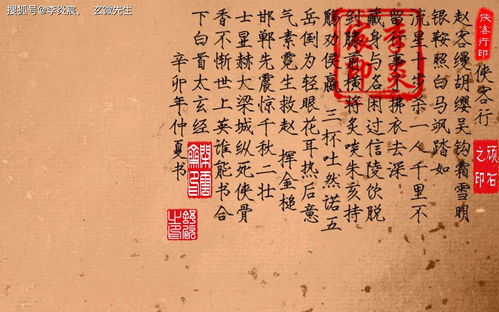 搜狐号@李炎宸， 玄微先生
侠客行印
侠客行
赵客缦胡缨吴钩霜雪明
银鞍照白马飒踏如
流星十步杀一人千里不
留行事了拂衣去深
藏身与名闲过信陵饮脱
剑膝前横将炙啖朱亥持
觞劝侯嬴 三杯吐然诺五
岳倒为轻眼花耳热后意
气素霓生救赵 挥金槌
邯郸先震惊千秋二壮
士显赫大梁城纵死侠骨
香不惭世上英谁能书合
下白首太玄经
辛卯年仲夏书
顽石之印